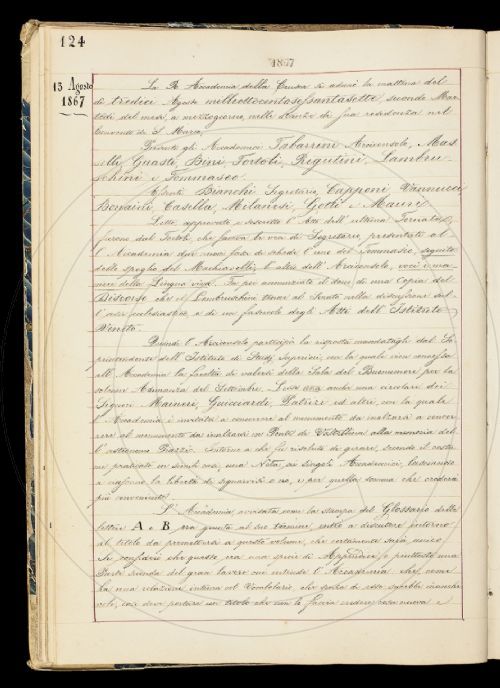 124
1867
13 Agosto
1867
La R. Accademia della Crusca si adunò la mattina del
dì tredici Agosto milleottocentosessantasette, secondo Mar-
tedì del mese, a mezzogiorno, nelle stanze di sua residenza nel
Convento di S. Marco.
Presenti gli Accademici Tabarrini Arciconsolo, Mas-
selli, Guasti, Bini, Tortoli, Rigutini, Lambru-
schini e Tommaseo.
Assenti Bianchi Segretario, Capponi, Vannucci
Bonaini, Casella, Milanesi, Gotti e Mauri
Letto, approvato e sottoscritto l'Atto dell'ultima Tornata,
furono dal Tortoli, che faceva le veci di Segretario, presentati al-
l'Accademia due nuovi fasci di schede l'uno del Tommaseo, seguito
dello spoglio del Machiavelli; l'altro dell'Arciconsolo, voci e ma-
niere della Lingua viva. Fu poi annunziato il dono di una copia del
Discorso che il Lambruschini tenne al Senato nella discussione sul-
l'asse ecclesiastico, e di un fascicolo degli Atti dell'Istituto
Veneto.
Quindi l'Arciconsolo partecipò la risposta mandatagli dal So-
printendente dell'Istituto di Studj Superiori, con la quale vien concessa
all'Accademia la facoltà di valersi della Sala del Buonumore per la
solenne Adunanza del Settembre. Lesse anche una circolare dei
Signori Maineri, Guicciardi, Patrizi ed altri, con la quale
l'Accademia è invitata a concorrere al monumento da inalzarsi a concor-
rere al monumento da inalzarsi in Ponte di Valtellina alla memoria del-
l'astronomo Piazzi. Intorno a che fu risoluto di girare, secondo il costu-
me praticato in simili casi, una Nota ai singoli Accademici, lasciando
a ognuno la libertà di segnarvisi o no, e per quella somma che crederà
più conveniente.
L'Accademia, avvisata come la stampa del Glossario delle
lettere A e B era giunta al suo termine, entrò a discutere intorno
al titolo da premettersi a questo volume, che certamente sarà unico.
Si considerò che questo era una specie di Appendice, o piuttosto una
Parte seconda del gran lavoro cui intende l'Accademia, che come
ha una relazione intima col Vocabolario, che senza di esso sarebbe manche-
vole, così deve portare un titolo che non lo faccia credere cosa nuova e